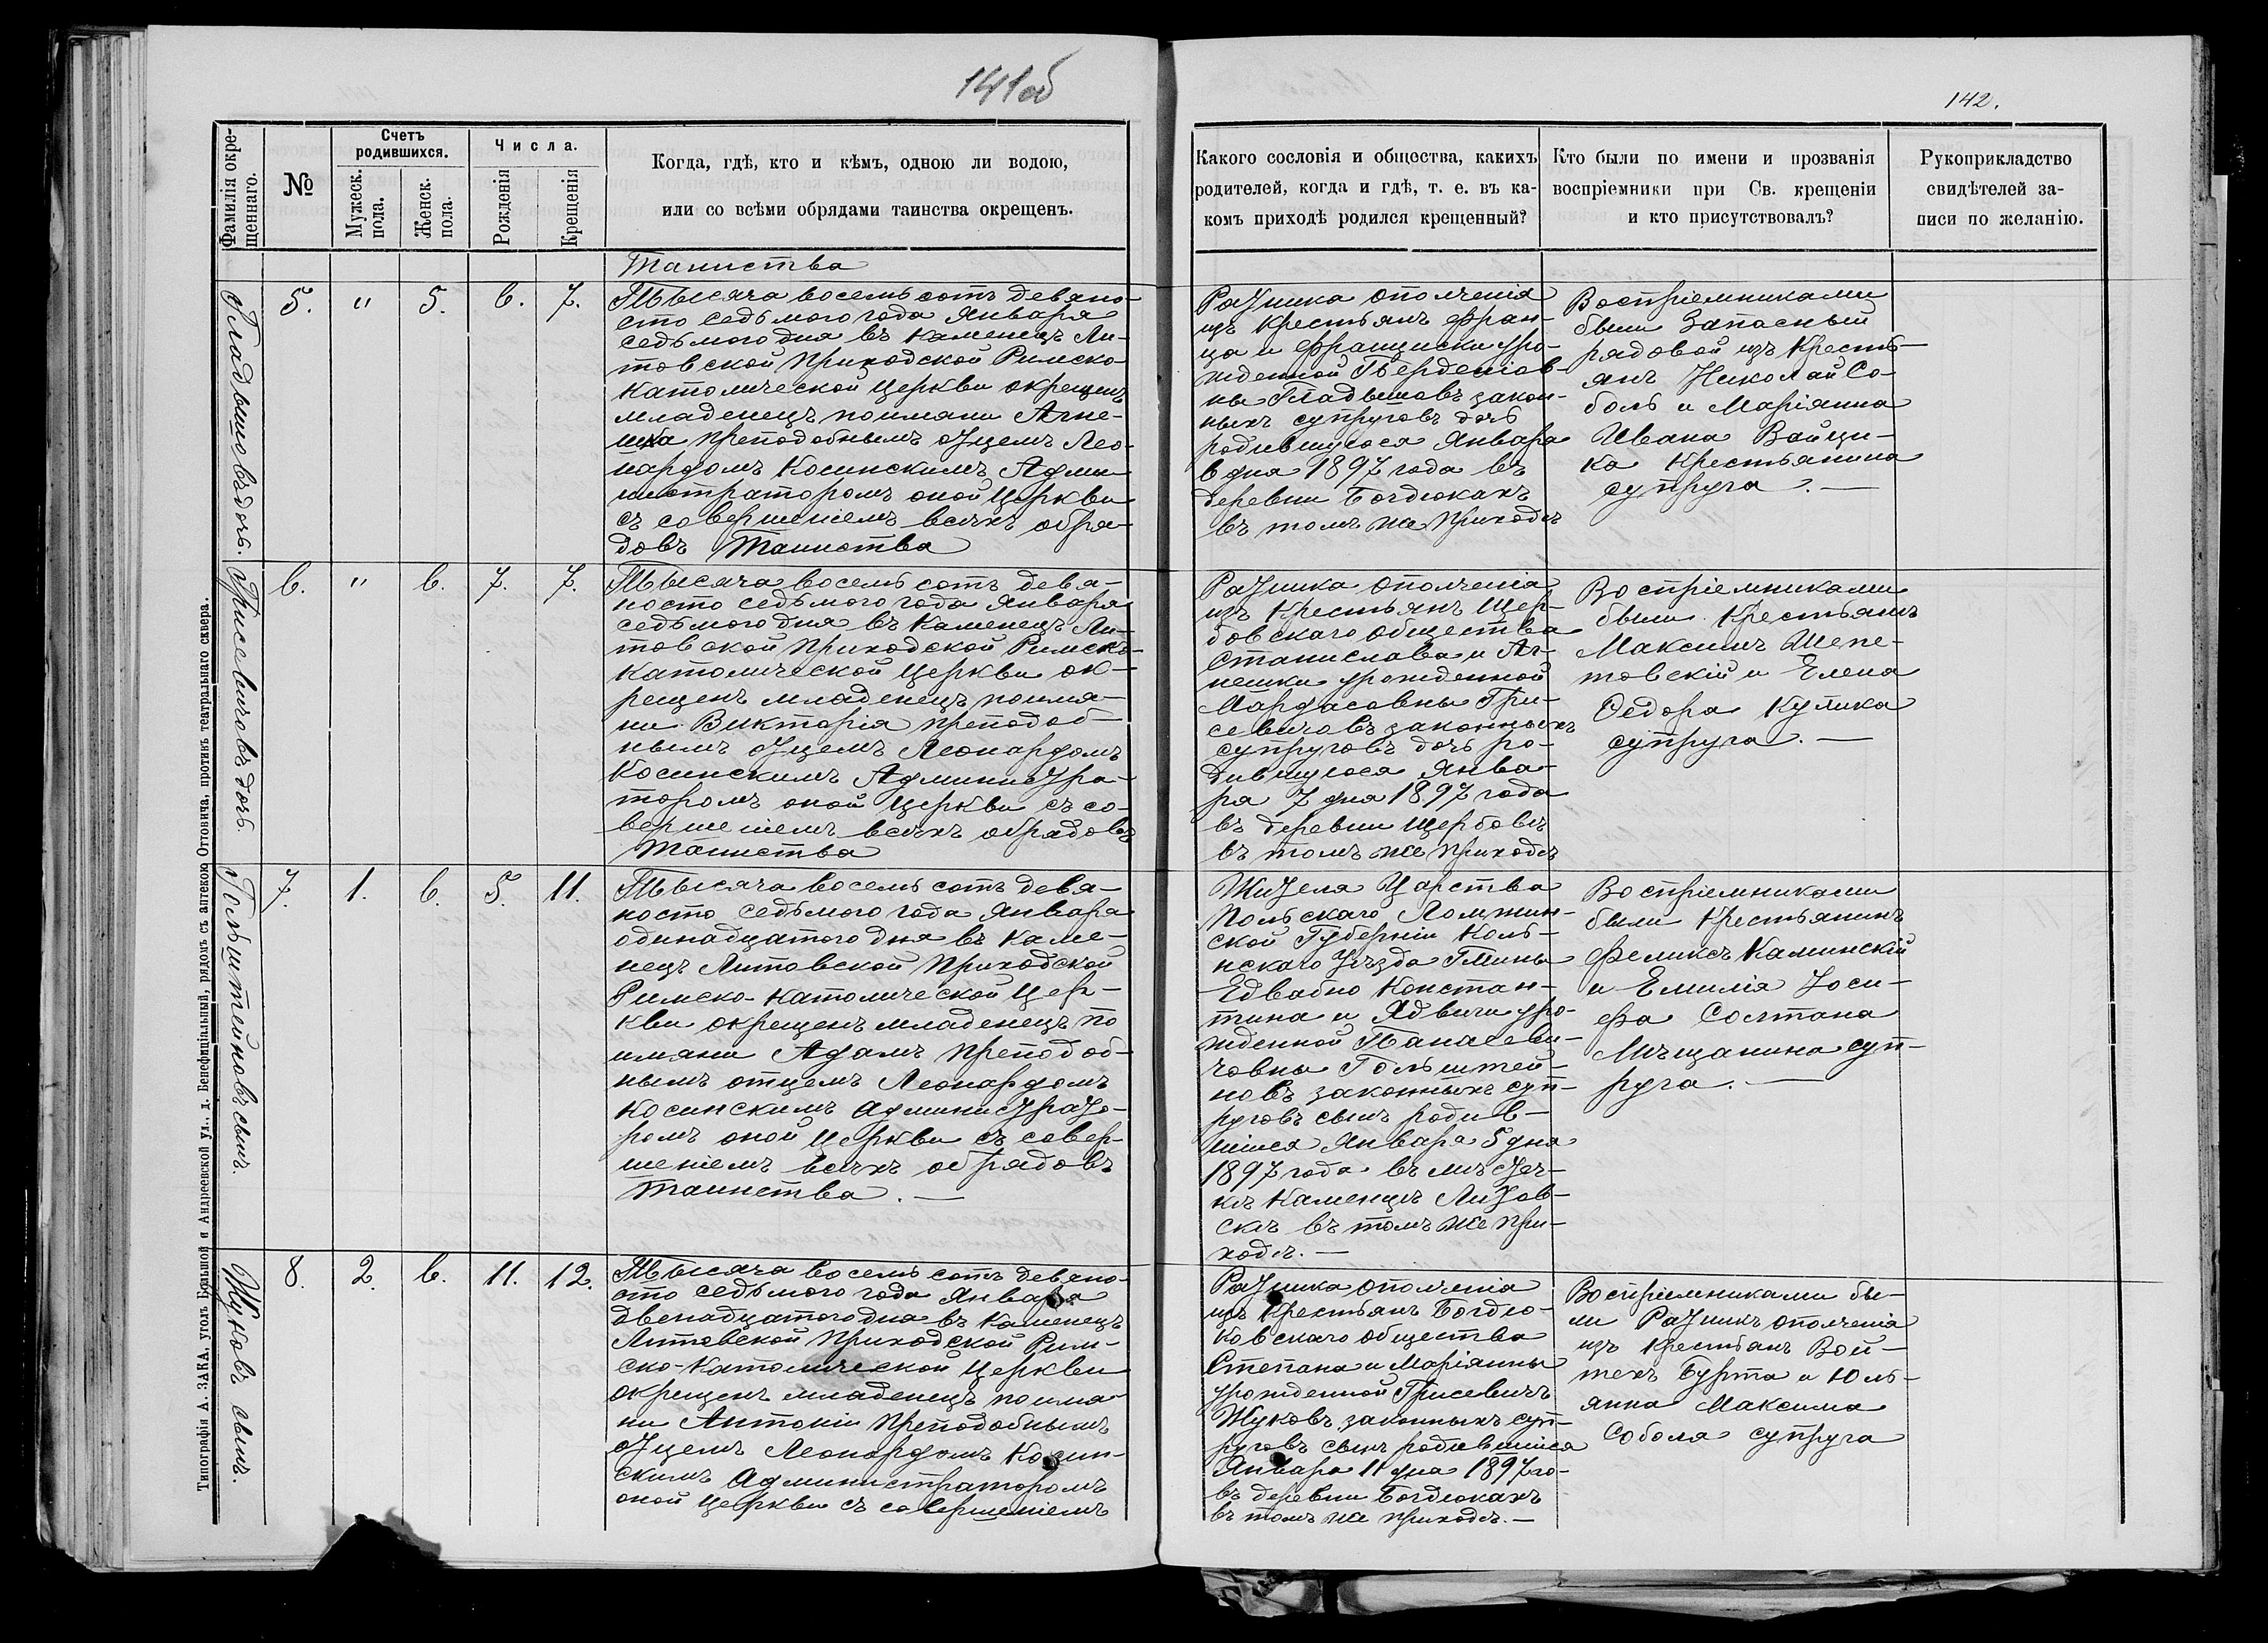 141об
142.
Фамилія окре-
щеннаго.
№
Счетъ
родившихся.
Мужеск.
пола.
Женск.
пола.
Числа.
Рожденія
Крещенія
Когда, гдѣ, кто и кѣмъ, одною ли водою,
или со всѣми обрядами таинства окрещенъ.
Какого сословія и общества, какихъ
родителей, когда и гдѣ, т. е. въ ка-
комъ приходѣ родился крещенный?
Кто были по имени и прозванія
воспріемники при Св. крещеніи
и кто присутствовалъ?
Рукоприкладство
свидѣтелей за-
писи по желанію.
Таинства
Гладышовъ дочь.
5. " 5. 6. 7.
Тысяча восемьсотъ девяно-
сто седьмого года Января
седьмого дня въ Каменецъ Ли-
товской Приходской Римско
Католической Церкви окрещенъ
младенецъ поимяни Агне-
шка преподобнымъ Отцемъ Лео-
нардомъ Косинскимъ Админи
нистраторомъ оной Церкви
съ совершеніемъ всѣхъ обря-
довъ Таинства
Ратника ополченія
изъ Крестьянъ Фран-
ца и Францишки уро-
жденной Берделіов-
ны Гладышовъ закон-
ныхъ супруговъ дочь
родившуюся Января
6 дня 1897 года въ
деревни Богдюкахъ
въ томъ же приходѣ
Воспріемниками
были Запасный
рядовой изъ Кресть-
янъ Николай Со-
боль и Маріянна
Ивана Войци-
ка Крестьянина
супруга. —
Грисевичовъ дочь.
6. " 6. 7. 7.
Тысяча восемьсотъ девя-
носто седьмого года Января
седьмого дня въ Каменецъ Ли-
товской Приходской Римско-
Католической Церкви ок-
рещенъ младенецъ поимя-
ни Викторія преподоб-
нымъ Отцемъ Леонардомъ
Косинскимъ Администра-
торомъ оной Церкви съ со-
вершеніемъ всѣхъ обрядовъ
Таинства
Ратника ополченія
изъ Крестьянъ Щер-
бовскаго общества
Станислава и Аг-
нешки урожденной
Мардасовны Гри-
севичовъ законныхъ
супруговъ дочь ро-
дившуюся Янва-
ря 7 дня 1897 года
въ деревни Щербовѣ
въ томъ же приходѣ
Воспріемниками
были Крестьянъ
Максимъ Шепе-
товскій и Елена
Федора Кулика
супруга. —
Гольштейновъ сынъ.
7. 1. 6. 5. 11.
Тысяча восемьсотъ девя-
носто седьмого года Января
одинадцатого дня въ Каме-
нецъ Литовской Приходской
Римско-Католической Цер-
кви окрещенъ младенецъ по
имяни Адамъ преподоб-
нымъ отцемъ Леонардомъ
Косинскимъ Администрато-
ромъ оной Церкви съ совер-
шеніемъ всѣхъ обрядовъ
Таинства. —
Жителя Царства
Польскаго Ломжин-
ской Губерніи Коль-
нскаго Уѣзда Гмины
Едвабно Констан-
тина и Ядвиги уро-
жденной Панасеви-
човны Гольштей-
новъ законныхъ суп-
руговъ сынъ родив-
шійся Января 5 дня
1897 года въ мѣстеч-
кѣ Каменцѣ Литов-
скѣ въ томъ же при-
ходѣ. —
Воспріемниками
были Крестьянинъ
Феликсъ Каминскій
и Емилія Іоси-
фа Солтана
Мѣщанина суп-
руга. —
Жуковъ сынъ.
8. 2. 6. 11. 12.
Тысяча восемьсотъ девяно-
сто седьмого года Января
двенадцатого дня въ Каменецъ
Литовской Приходской Рим-
ско-Католической Церкви
окрещенъ младенецъ поимя-
ни Антоній Преподобнымъ
Отцемъ Леонардомъ Косин-
скимъ Администраторомъ
оной Церкви съ совершеніемъ
Ратника ополченія
изъ Крестьянъ Богдю-
ковскаго общества
Степана и Маріянны
урожденной Грисевичъ
Жуковъ законныхъ суп-
руговъ сынъ родившійся
Января 11 дня 1897 го-
въ деревни Богдюкахъ
въ томъ же приходѣ. —
Воспріемниками бы-
ли Ратникъ ополченія
изъ Крестьянъ Вой-
техъ Бурта и Юль-
янна Максима
Соболя супруга
Типографія А. ЗАКА, уголъ Большой и Андреевской ул., д. Бенефиціальный, рядомъ съ аптекою Оттовича, противъ театральнаго сквера.